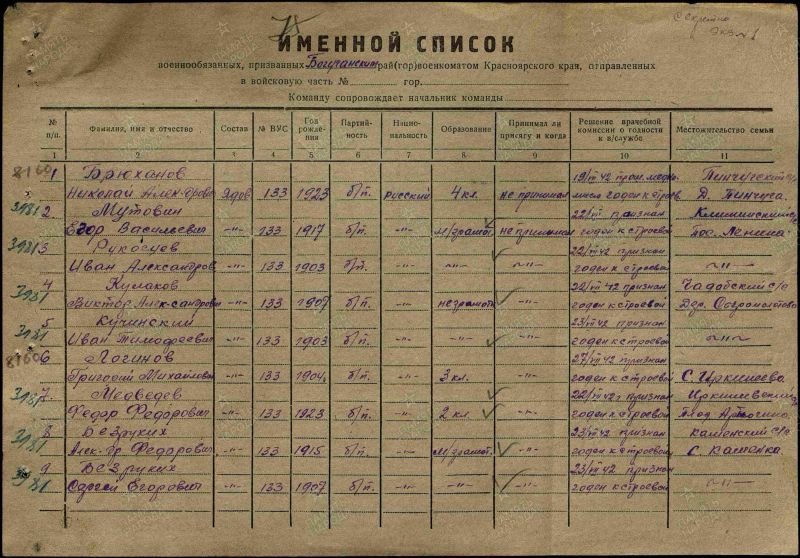 Секретно
экз. № 1
ИМЕННОЙ СПИСОК
военнообязанных, призванных Богучанским рай(гор)военкоматом Красноярского края, отправленных
в войсковую часть № гор.
Команду сопровождает начальник команды
№ п/п. Фамилия, имя и отчество Состав № ВУС Год рождения Партийность Национальность Образование Принимал ли присягу и когда Решение врачебной комиссии о годности к в/службе Местожительство семьи
1 2 3 4 5 6 7 8 9 10 11
8160 1 Брюханов 19/III 42 Пинчугский с/с
Николай Алек-дрович Рядов 133 1923 б/п. русский 4 кл. не принимал годен к строев. Д. Пинчуга
3181 2 Мутовин 22/III признан
Егор Васильевич -"- 133 1917 б/п. -"- м/грамот. не принимал годен к строевой Пос. Ленина
3181 3 Рукосуев 22/III 42 признан
Иван Александров -"- 133 1903 б/п. -"- -"- -"- годен к строевой -"-
4 Кулаков 22/III 42 признан Чадобский с/с
3181 Виктор Алек-сандрович -"- 133 1907 б/п. -"- неграмотн годен к строевой Дер.
5 Кучинский 23/III 42 признан
3181 Иван Тимофеевич -"- 133 1903 б/п. -"- -"- -"- годен к строевой -"-
8160 6 Логинов 27/III 42 признан
Григорий Михайлович -"- 133 1904 б/п. -"- 3 кл. -"- годен к строевой С. Иркинеево
3181 7 Медведев 22/III 42 г признан Иркинеевский
Федор Федорович -"- 133 1923 б/п. -"- 2 кл. -"- годен к строевой
8 Безруких 23/III 42 признан Каменский с/с
3181 Алек-др. Федорович -"- 133 1915 б/п. -"- м/грамот. -"- годен к строевой С. Каменка
9 Безруких 23/III 42 признан
3181 Сергей Егорович -"- 133 1907 б/п. -"- -"- -"- годен к строевой -"-